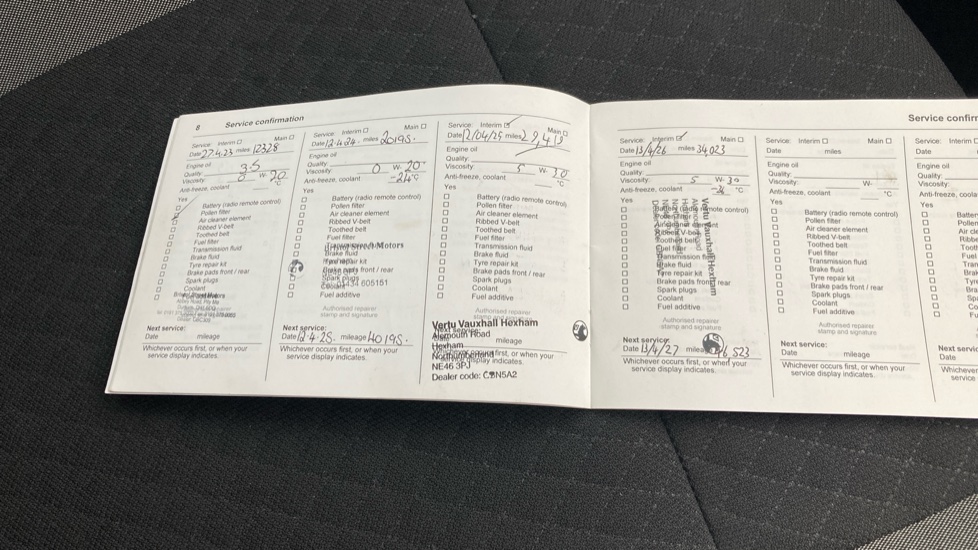 8 Service confirmation
Service: Interim ☐ Main ☐
Date 27.4.23 miles 12328
Engine oil
Quality:
Viscosity: W- 20
Anti-freeze, coolant °C
Yes
Battery (radio remote control)
Pollen filter
Air cleaner element
Ribbed V-belt
Toothed belt
Fuel filter
Transmission fluid
Brake fluid
Tyre repair kit
Brake pads front / rear
Spark plugs
Coolant
Next service:
Date mileage
Whichever occurs first, or when your
service display indicates.
Service: Interim ☐ Main ☐
Date 12.4.24. miles 20195.
Engine oil
Quality:
Viscosity: 0 W- 20
Anti-freeze, coolant -24 °C
Yes
Battery (radio remote control)
Pollen filter
Air cleaner element
Ribbed V-belt
Toothed belt
Fuel filter
Motors
Brake fluid
Tyre repair kit
Brake pads front / rear
Spark plugs
Coolant 605151
Fuel additive
Authorised repairer
stamp and signature
Next service:
Date 12.4.25. mileage 40195.
Whichever occurs first, or when your
service display indicates.
Service: Interim ☑ Main ☐
Date 12/04/25 miles 29,419
Engine oil
Quality:
Viscosity: 5 W- 30
Anti-freeze, coolant °C
Yes
Battery (radio remote control)
Pollen filter
Air cleaner element
Ribbed V-belt
Toothed belt
Fuel filter
Transmission fluid
Brake fluid
Tyre repair kit
Brake pads front / rear
Spark plugs
Coolant
Fuel additive
Authorised repairer
stamp and signature
Vertu Vauxhall Hexham
Road
mileage
Hexham
first, or when your
Northumberland display indicates.
NE46 3PJ
Dealer code: C
Service confirm
Service: Interim ☑ Main ☐
Date 13/4/26 miles 34,023
Engine oil
Quality:
Viscosity: 5 W- 30
Anti-freeze, coolant °C
Yes
Vertu Vauxhall Hexham
Battery (radio remote control)
Air cleaner element
Ribbed V-belt
Toothed belt
Fuel filter
Transmission fluid
Brake fluid
Tyre repair kit
Brake pads front / rear
Spark plugs
Coolant
Fuel additive
Authorised repairer
stamp and signature
Next service:
Date 13/4/27 mileage 46,523
Whichever occurs first, or when your
service display indicates.
Service: Interim ☐ Main ☐
Date miles
Engine oil
Quality:
Viscosity: W-
Anti-freeze, coolant °C
Yes
Battery (radio remote control)
Pollen filter
Air cleaner element
Ribbed V-belt
Toothed belt
Fuel filter
Transmission fluid
Brake fluid
Tyre repair kit
Brake pads front / rear
Spark plugs
Coolant
Fuel additive
Authorised repairer
stamp and signature
Next service:
Date mileage
Whichever occurs first, or when your
service display indicates.
Service: Interim
Date
Engine oil
Quality:
Viscosity:
Anti-freeze, coolant
Yes
Batter
Pollen
Air cle
Ribbed
Tooth
Fuel
Tran
Bra
Tyre
Bra
Spa
Co
Fu
Next servi
Date
Whichever
servic